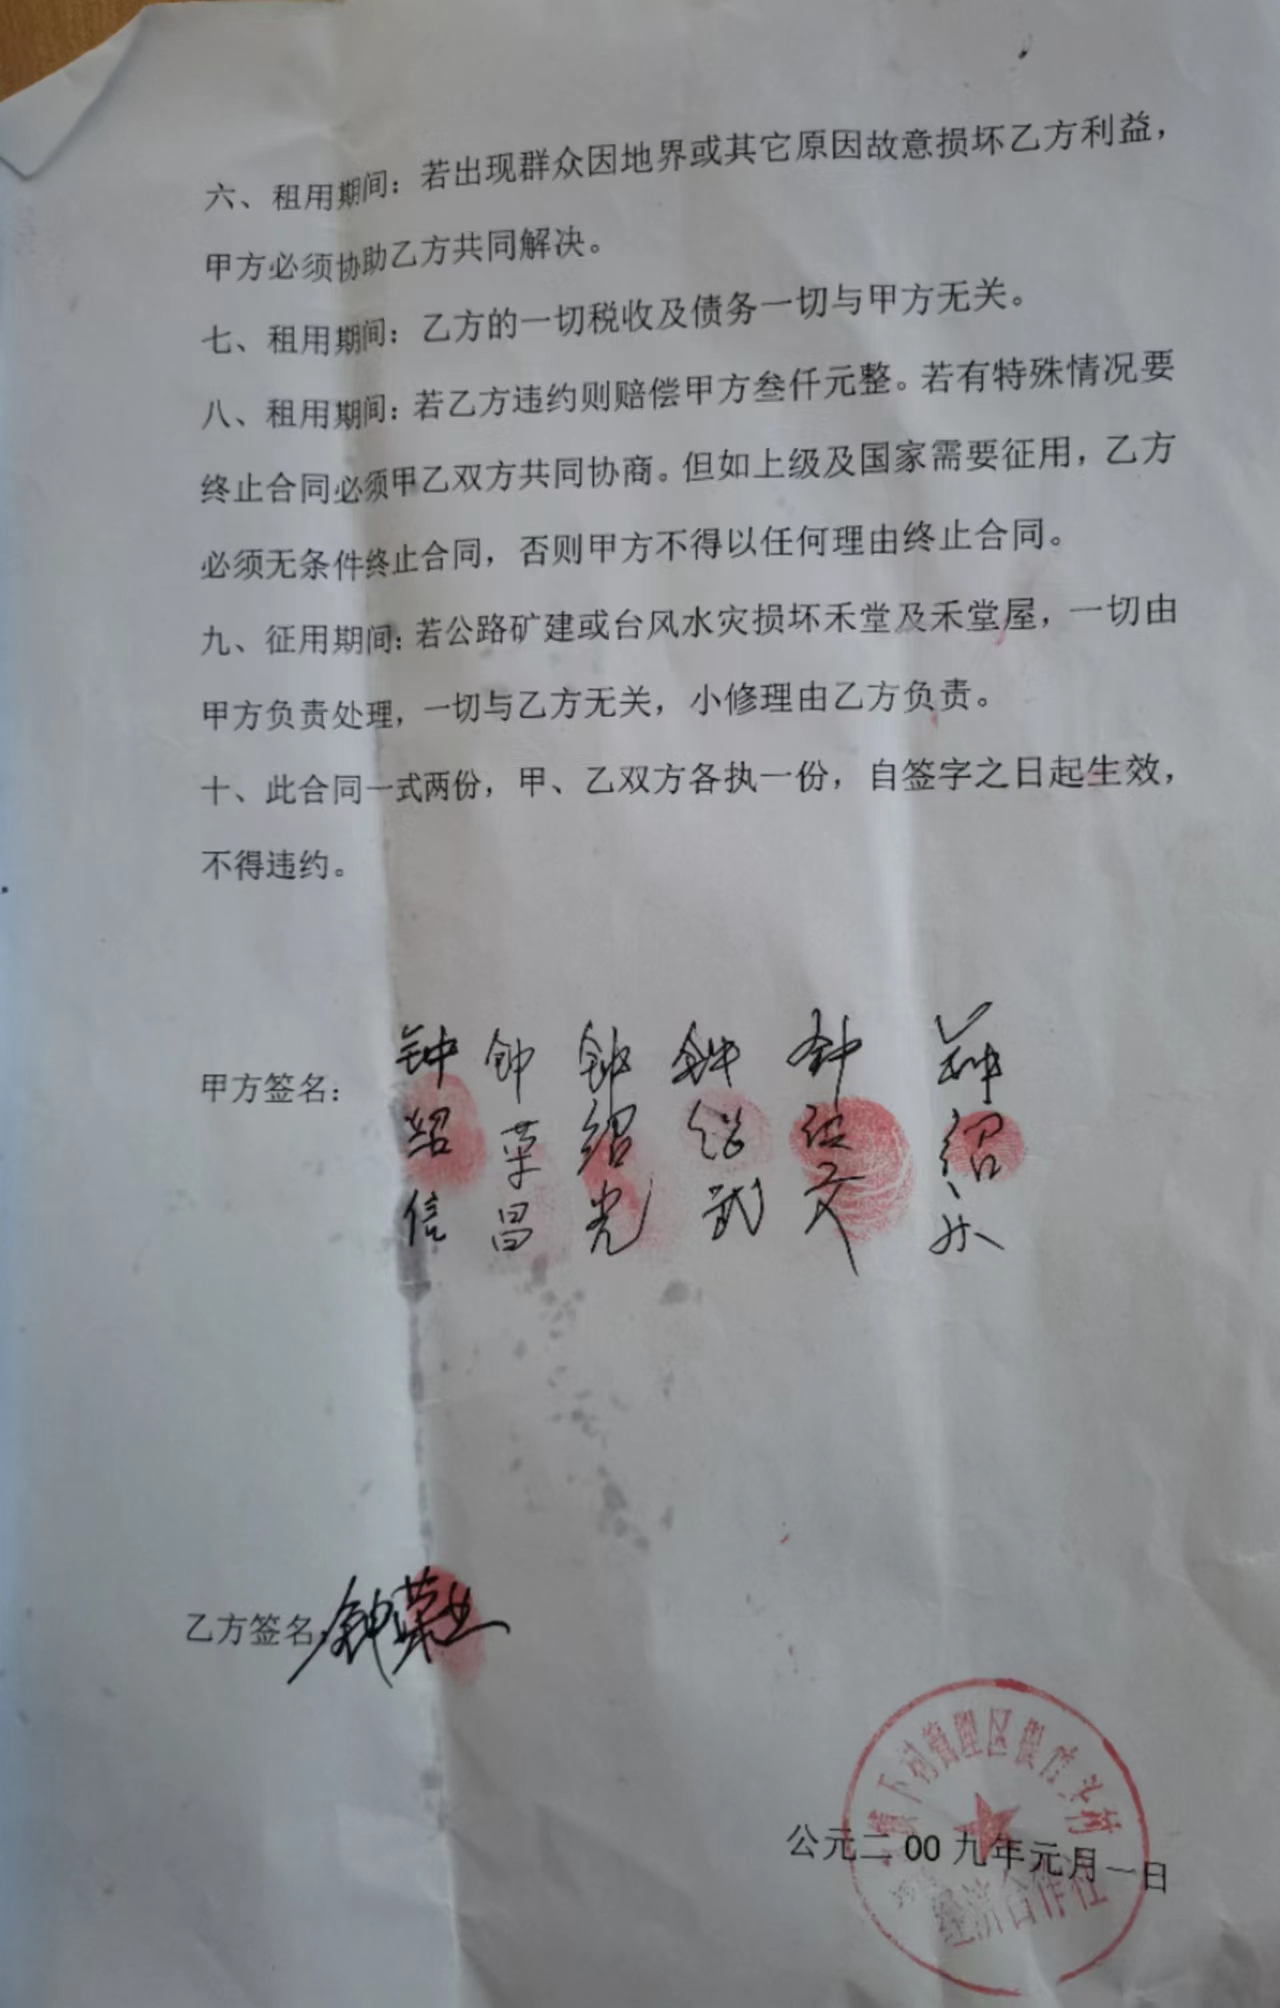 六、租用期间：若出现群众因地界或其它原因故意损坏乙方利益，
甲方必须协助乙方共同解决。
七、租用期间：乙方的一切税收及债务一切与甲方无关。
八、租用期间：若乙方违约则赔偿甲方叁仟元整。若有特殊情况要
终止合同必须甲乙双方共同协商。但如上级及国家需要征用，乙方
必须无条件终止合同，否则甲方不得以任何理由终止合同。
九、征用期间：若公路矿建或台风水灾损坏禾堂及禾堂屋，一切由
甲方负责处理，一切与乙方无关，小修理由乙方负责。
十、此合同一式两份，甲、乙双方各执一份，自签字之日起生效，
不得违约。
甲方签名：
钟绍信
钟荣昌
钟绍光
钟 武
钟 文
钟绍
乙方签名：钟荣业
公元二00九年元月一日
下村管理区 村
经济合作社